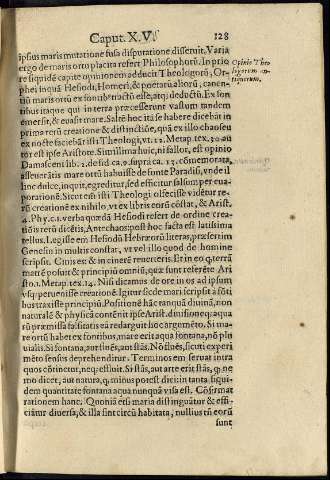 Caput. X.V. 128
ipsius maris mutatione fusa disputatione disseruit. Varia
ergo de maris orto placita refert Philosophorũ. In prio
re siquidẽ capite opinionem adducit Theologorũ, Or-
phei inquã Hesiodi, Homeri, & poetarũ aliorũ, canen-
tiũ maris ortũ ex fontibꝰ factũ esse, atq; deductũ. Ex fon
tibus autem quia in terra præcesserunt vastum tandem
emersit, & euasit mare. Saltẽ hoc ita se habere dicebãt in
prima rerũ creatione & distinctiõe, quã ex illo chao seu
ex nocte faciebãt isti Theologi, vt. 12. Metap. tex. 30 au
tor est ipse Aristote. Simillima huic, ni fallor, est opinio
Damasceni lib. 2. de fid. ca. 9. supra ca. 13. cõmemorata,
asseuerãtis mare ortũ habuisse de fonte Paradisi, vnde il
linc dulce, inquit, egreditur, sed efficitur salsum per eua
porationẽ. Sicot est isti Theologi offecisse vidẽtur re-
rũ creationẽ ex nihilo, vt ex libris eorũ cõstat, & Arist.
4. Phy. c. 1. verba quædã Hesiodi refert de ordine crea-
tiõis rerũ dicẽtis, Ante chaos, post hoc facta est latissima
tellus. Legisse em Hesiodũ Hebræorũ literas, præsertim
Genesin in multis constat, vt vel illo quod de homine
scripsit. Cinis es: & in cinerẽ reuerteris. Et in eo q. terrã
matrẽ posuit & principiũ omniũ, quæ sunt referẽte Ari
sto. 1. Metap. tex. 14. Nisi dicamus de ore in os ad ipsum
vsq; peruenisse creationẽ. Igitur sic de mari scripsit à fõti
bus traxisse principiũ. Positionẽ hãc tanquã diuinã, non
naturalẽ & physicã contẽnit ipse Arist. diuisione q; aqua
rũ præmissa falsitatis eã redarguit hoc argumẽto. Si ma-
re ortũ habet ex fontibus, mare erit aqua fontana, nõ plu
uialis. Si fontana, aut fluẽs, aut stãs. Nõ fluẽs, sicuti experi
mẽto sensus deprehenditur. Terminos em seruat intra
quos cõtinetur, neq; effluit. Si stãs, aut arte erit stãs, q. ne
mo dicet, aut natura, q. minus potest dici: in tanta siqui-
dem quantitate fontana aqua nunquã visa est. Cõfirmat
rationem hanc. Quoniã cũm maria distinguãtur & effi-
ciãtur diuersa, & illa sint circũ habitata, nullius tñ eorũ
sunt
Opinio Theo
logorum an-
tiquorum.